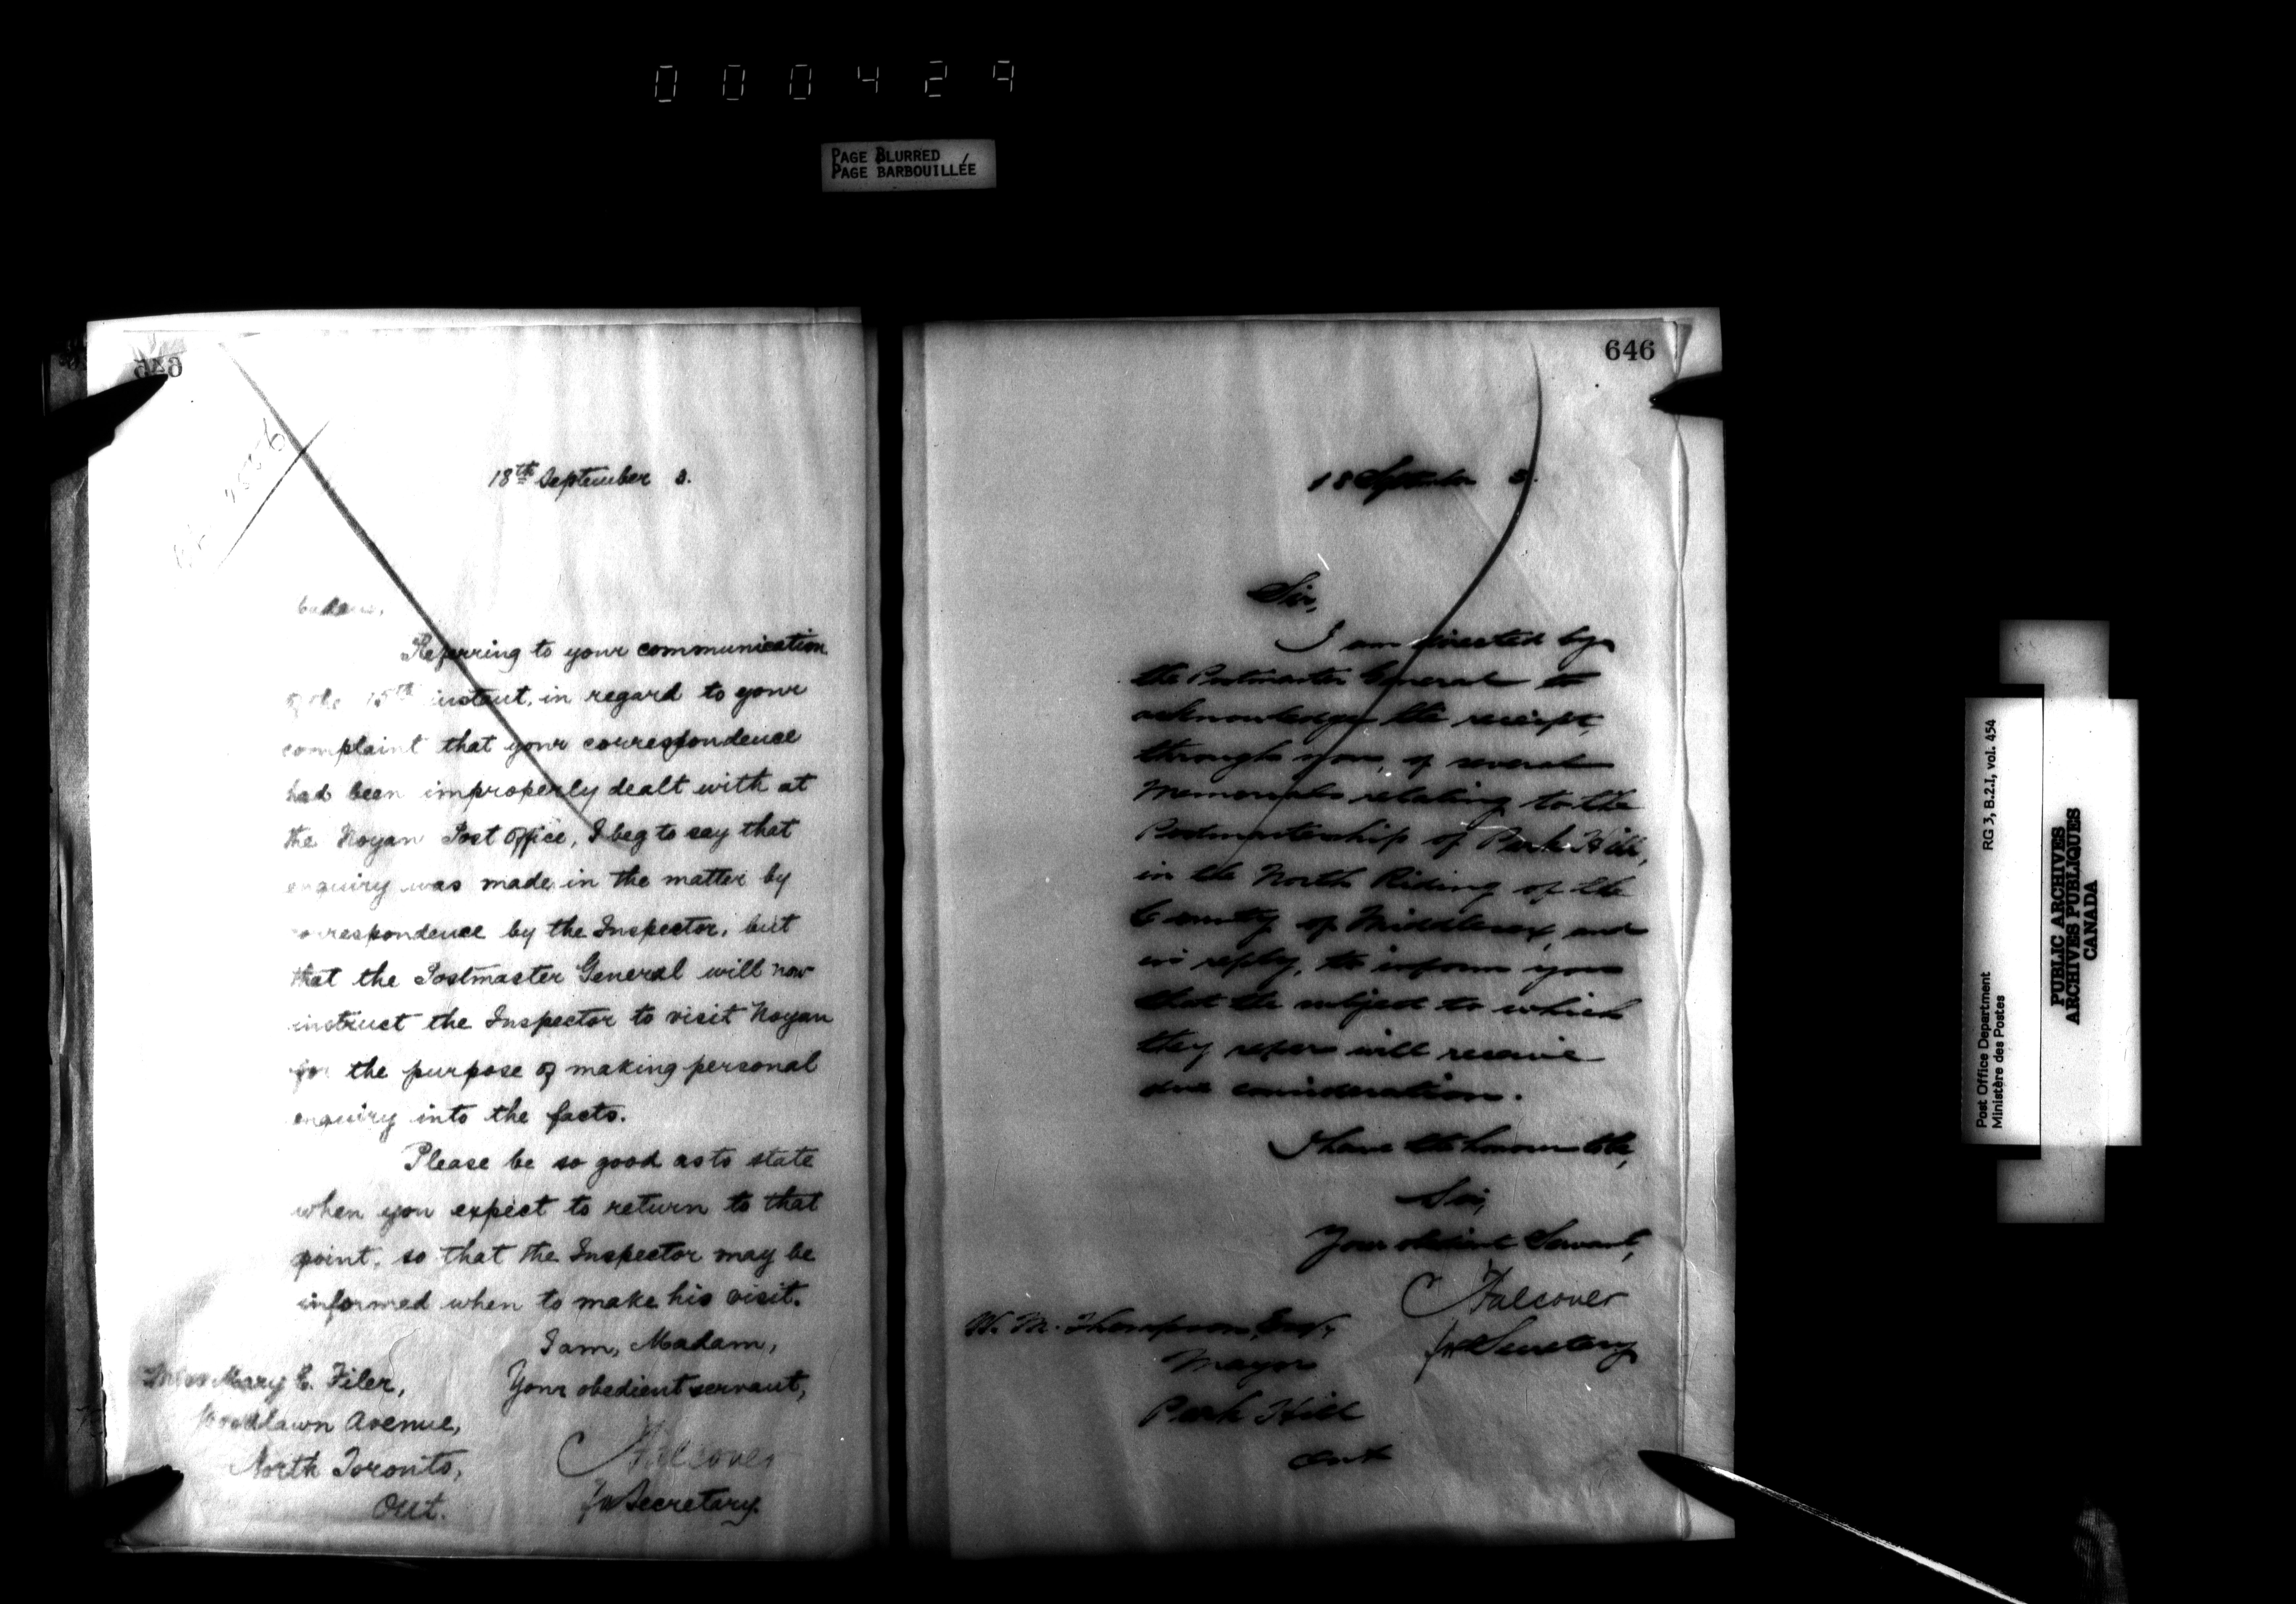 000429
PAGE BLURRED
PAGE BARBOUILLÉE
18th September 3.
Madam,
Referring to your communication
of the 15th instant, in regard to your
complaint that your correspondence
had been improperly dealt with at
the Noyan Post Office, I beg to say that
enquiry was made in the matter by
correspondence by the Inspector, but
that the Postmaster General will now
instruct the Inspector to visit Noyan
for the purpose of making personal
enquiry into the facts.
Please be so good as to state
when you expect to return to that
point, so that the Inspector may be
informed when to make his visit.
I am, Madam,
Your obedient servant,
for Secretary.
Miss Mary E. Filer,
Woodlawn Avenue,
North Toronto,
Ont.
646
18 September 3.
Sir,
I am directed by
the Postmaster General to
acknowledge the receipt,
through you, of several
Memorials relating to the
Postmastership of Park Hill,
in the North Riding of the
County of Middlesex, and
in reply, to inform you
that the subject to which
they refer will receive
due consideration.
I have the honour to be,
Sir,
Your obedient Servant,
for Secretary
W. M. Thompson, Esq.,
Mayor
Park Hill
Ont
Post Office Department
Ministère des Postes
RG 3, B.2.1, vol. 454
PUBLIC ARCHIVES
ARCHIVES PUBLIQUES
CANADA